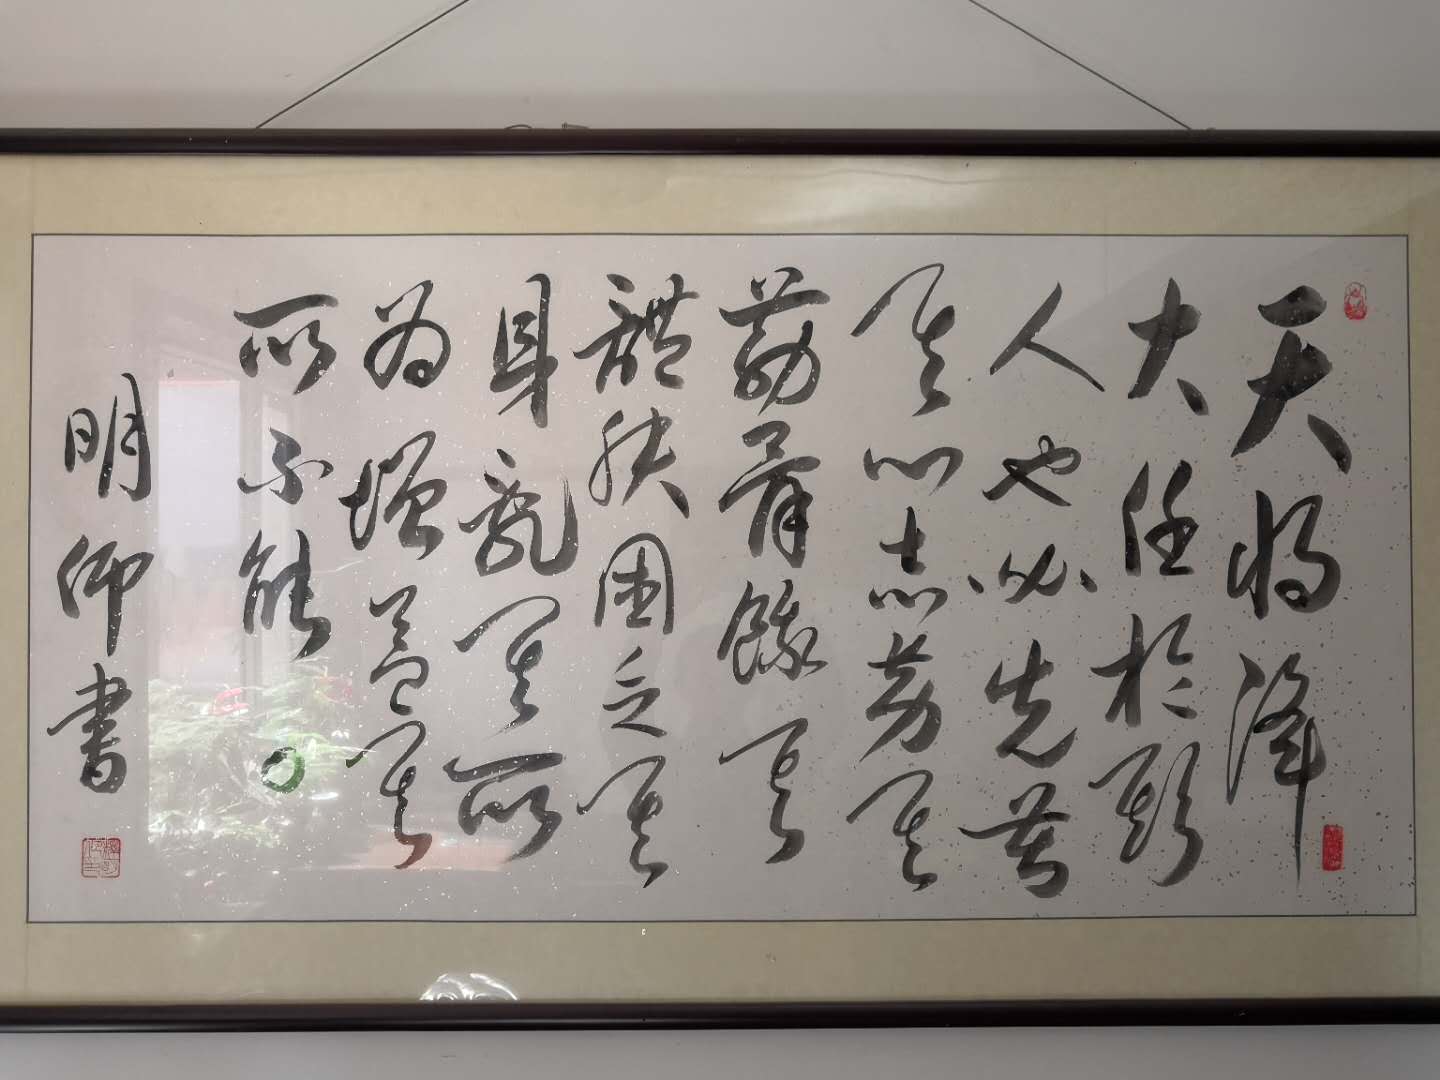 天将降
大任於斯
人也必先苦
其心志劳其
筋骨餓其
體肤困乏其
身亂其所
为增益其
所不能。
明仰書